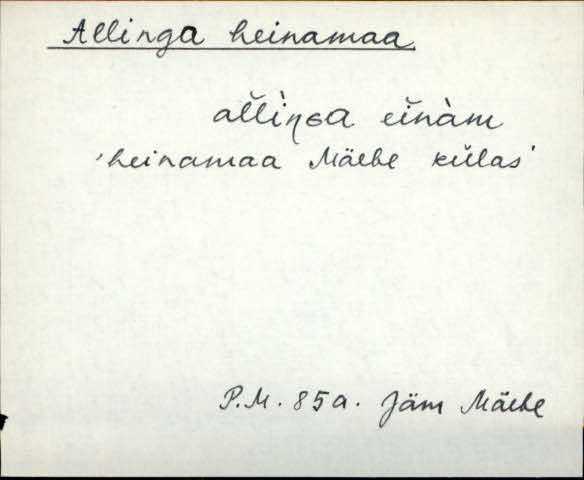 Allinga heinamaa
al̆l̆iŋ̀ɢa ei̯nàm
'heinamaa Mäebe külas'
P.M. 85a. Jäm Mäebe